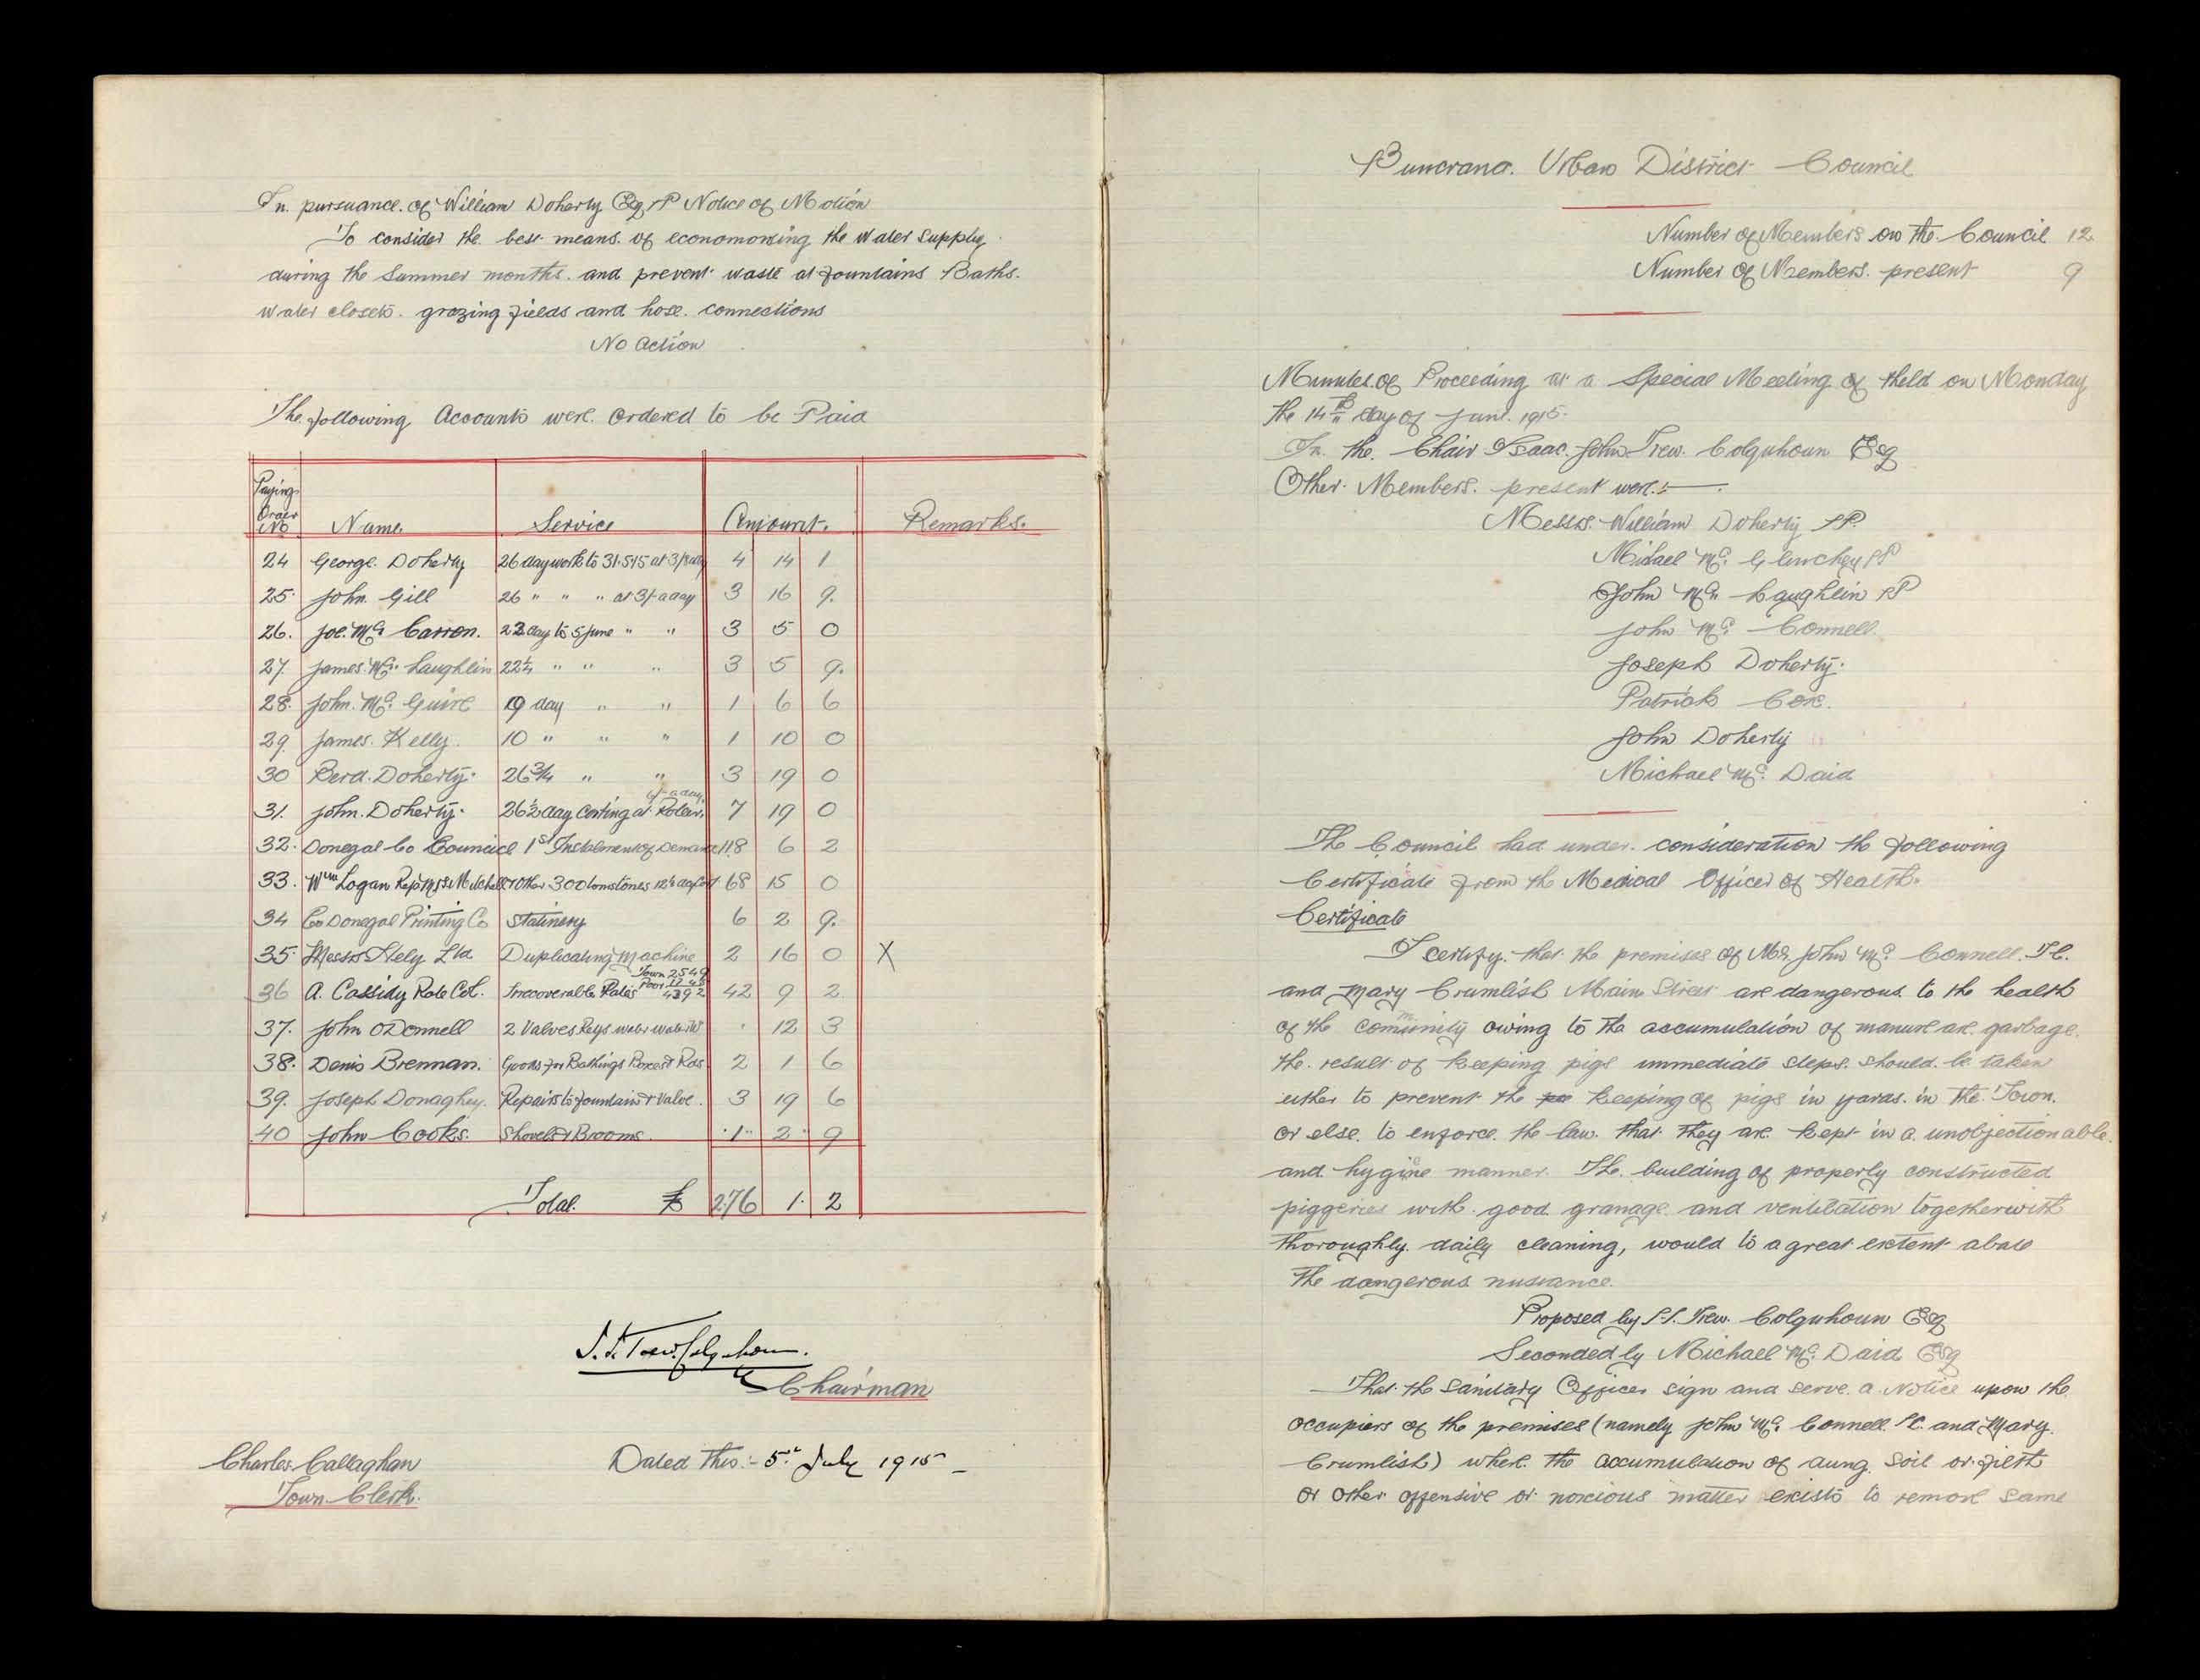 In pursuance of William Doherty Esq JP Notice of Motion
To consider the best means of economonsing the Water Supply
during the Summer months and prevent waste at fountains Baths
water closets grazing fields and hose connections
No Action
The following Accounts were ordered to be Paid
Paying Order No Name Service Amount. Remarks.
24 George Doherty 26 day work to 31.5.15 at 4 14 1
25 John Gill 26 " " " at 3/- a day 3 16 9
26. Joe Mc Carron. 23 day to 5 June " " 3 5 0
27. James Mc Laughlin 22¼ " " " 3 5 9.
28. John Mc Guire 19 day " " 1 6 6
29. James Kelly. 10 " " " 1 10 0
30 Berd. Doherty. 26¾ " " 3 19 0
31. John Doherty. 26½ day Carting at 6/- a day 7 19 0
32. Donegal Co Council 1st Instalment of Demand 118 6 2
33. Wm Logan Rep Mrs Mitchell & Other 300 tons tones 68 15 0
34 Co Donegal Printing Co Statinery 6 2 9.
35. Messrs Hely Ltd Duplicating Machine 2 16 0 X
36 A. Cassidy Rate Col. Irrecoverable Rates Town Poor 42 9 2
37. John ODonnell 2 Valves Keys water 12 3
38. Denis Brennan. Goods for Bathings Boxes & Rds 2 1 6
39. Joseph Donaghey. Repairs to fountain & Valve. 3 19 6
40 John Cooks. Shovels & Brooms. 1 2 9
Total. £ 276 1. 2
I. J. Trew. Colquhoun.
Chairman
Charles Callaghan
Town Clerk.
Dated This:- 5th July 1915
Buncrana Urban District Council
Number of Members on the Council 12
Number of Members present 9
Minutes of Proceeding at a Special Meeting of held on Monday
the 14th day of June 1915.
In the Chair Isaac John Trew Colquhoun Esq
Other Members present were:-
Messrs. William Doherty JP.
Michael Mc Glinchey JP
John Mc Laughlin JP
John Mc Connell
Joseph Doherty.
Patrick Coxe.
John Doherty
Michael Mc Daid
The Council had under consideration the following
Certificate from the Medical Officer of Health.
Certificate
I certify that the premises of Mr John Mc Connell T.C.
and Mary Crumlish Main Street are dangerous to the health
of the community owing to the accumulation of manure are garbage
the result of keeping pigs immediate steps should be taken
either to prevent the keeping of pigs in yards in the Town.
or else to enforce the law that they are kept in a unobjectionable
and hygine manner. The building of properly constructed
piggeries with good granage and ventilation together with
thoroughly daily cleaning, would to a great extent abate
the dangerous nusiance.
Proposed by I. J. Trew Colquhoun Esq
Seconded by Michael Mc Daid Esq
That the Sanitary Officer sign and serve a Notice upon the
occupiers of the premises (namely John Mc Connell T.C. and Mary
Crumlish) where the accumulation of dung soil or filth
or other offensive or noxious matter exists to remove same